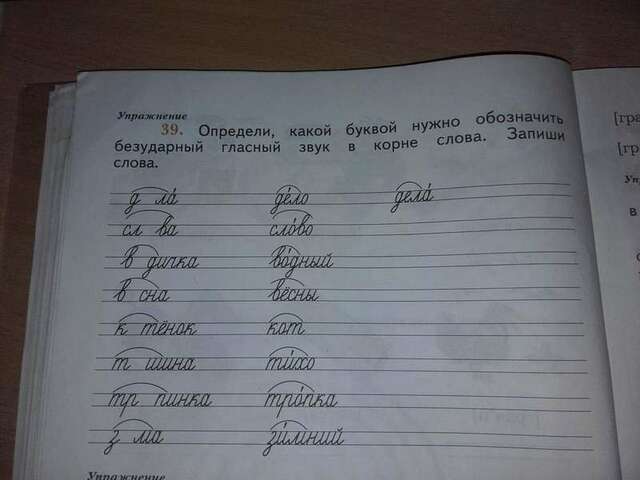 Упражнение
39. Определи, какой буквой нужно обозначить
безударный гласный звук в корне слова. Запиши
слова.
д ла́ де́ло дела́
сл ва сло́во
в дичка во́дный
в сна вёсны
к тёнок кот
т шина ти́хо
тр пинка тро́пка
з ма зи́мний
Упражнение
[гра
[гр
Уп
в
с